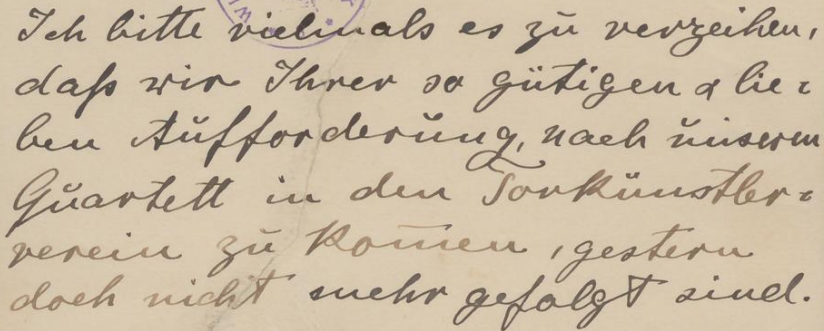 Ich bitte vielmals es zu verzeihen,
daß wir Ihrer so gütigen & lie=
ben Aufforderung, nach unserem
Quartett in den Tonkünstler=
verein zu kom̄en, gestern
doch nicht mehr gefolgt sind.